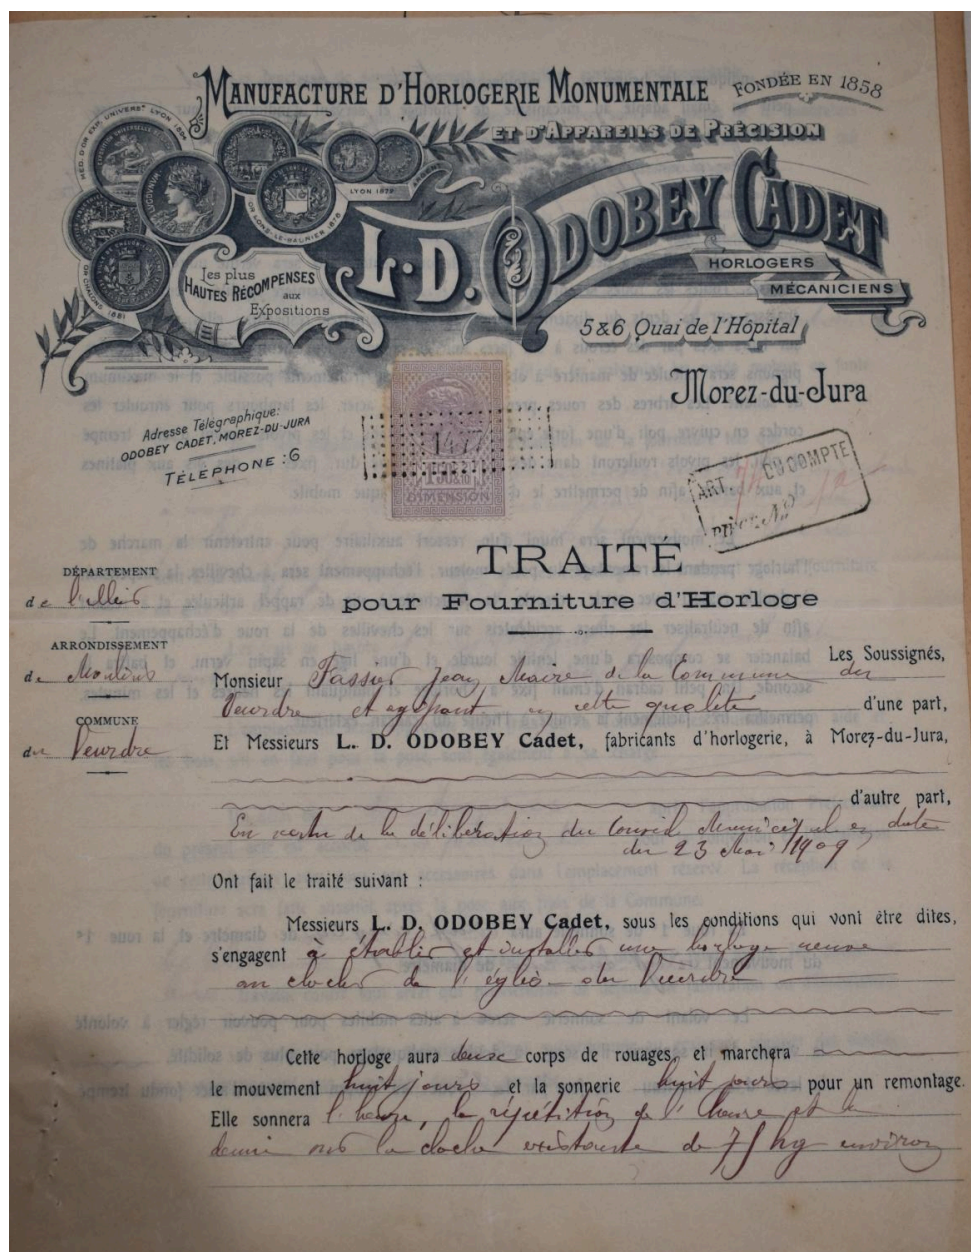 MANUFACTURE D'HORLOGERIE MONUMENTALE
FONDÉE EN 1858
ET D'APPAREILS DE PRÉCISION
L.D. ODOBEY CADET
HORLOGERS
MÉCANICIENS
MED. D'OR EXP. UNIVERS. LYON
LYON 1872
OR LONS-LE-SAUNIER 1878
OR CHALONS 1881
Les plus
HAUTES RÉCOMPENSES
aux
Expositions
5 & 6, Quai de l'Hôpital
Morez-du-Jura
Adresse Télégraphique:
ODOBEY CADET, MOREZ-DU-JURA
TÉLÉPHONE : 6
147
DIMENSION
ART. DU COMPTE
PIÈCE No
TRAITÉ
pour Fourniture d'Horloge
DÉPARTEMENT
de l'Allier
ARRONDISSEMENT
de Moulins
COMMUNE
du Veurdre
Les Soussignés,
Monsieur Tassier Jean Maire de la Commune du
Veurdre et agissant en cette qualité d'une part,
Et Messieurs L. D. ODOBEY Cadet, fabricants d'horlogerie, à Morez-du-Jura,
d'autre part,
En vertu de la délibération du Conseil Municipal en date
du 23 Mai 1909
Ont fait le traité suivant :
Messieurs L. D. ODOBEY Cadet, sous les conditions qui vont être dites,
s'engagent à établir et installer une horloge neuve
au clocher de l'église du Veurdre
Cette horloge aura deux corps de rouages, et marchera
le mouvement huit jours et la sonnerie huit jours pour un remontage.
Elle sonnera l'heure, la répétition de l'heure et la
demie sur la cloche existante de 75 kg environ